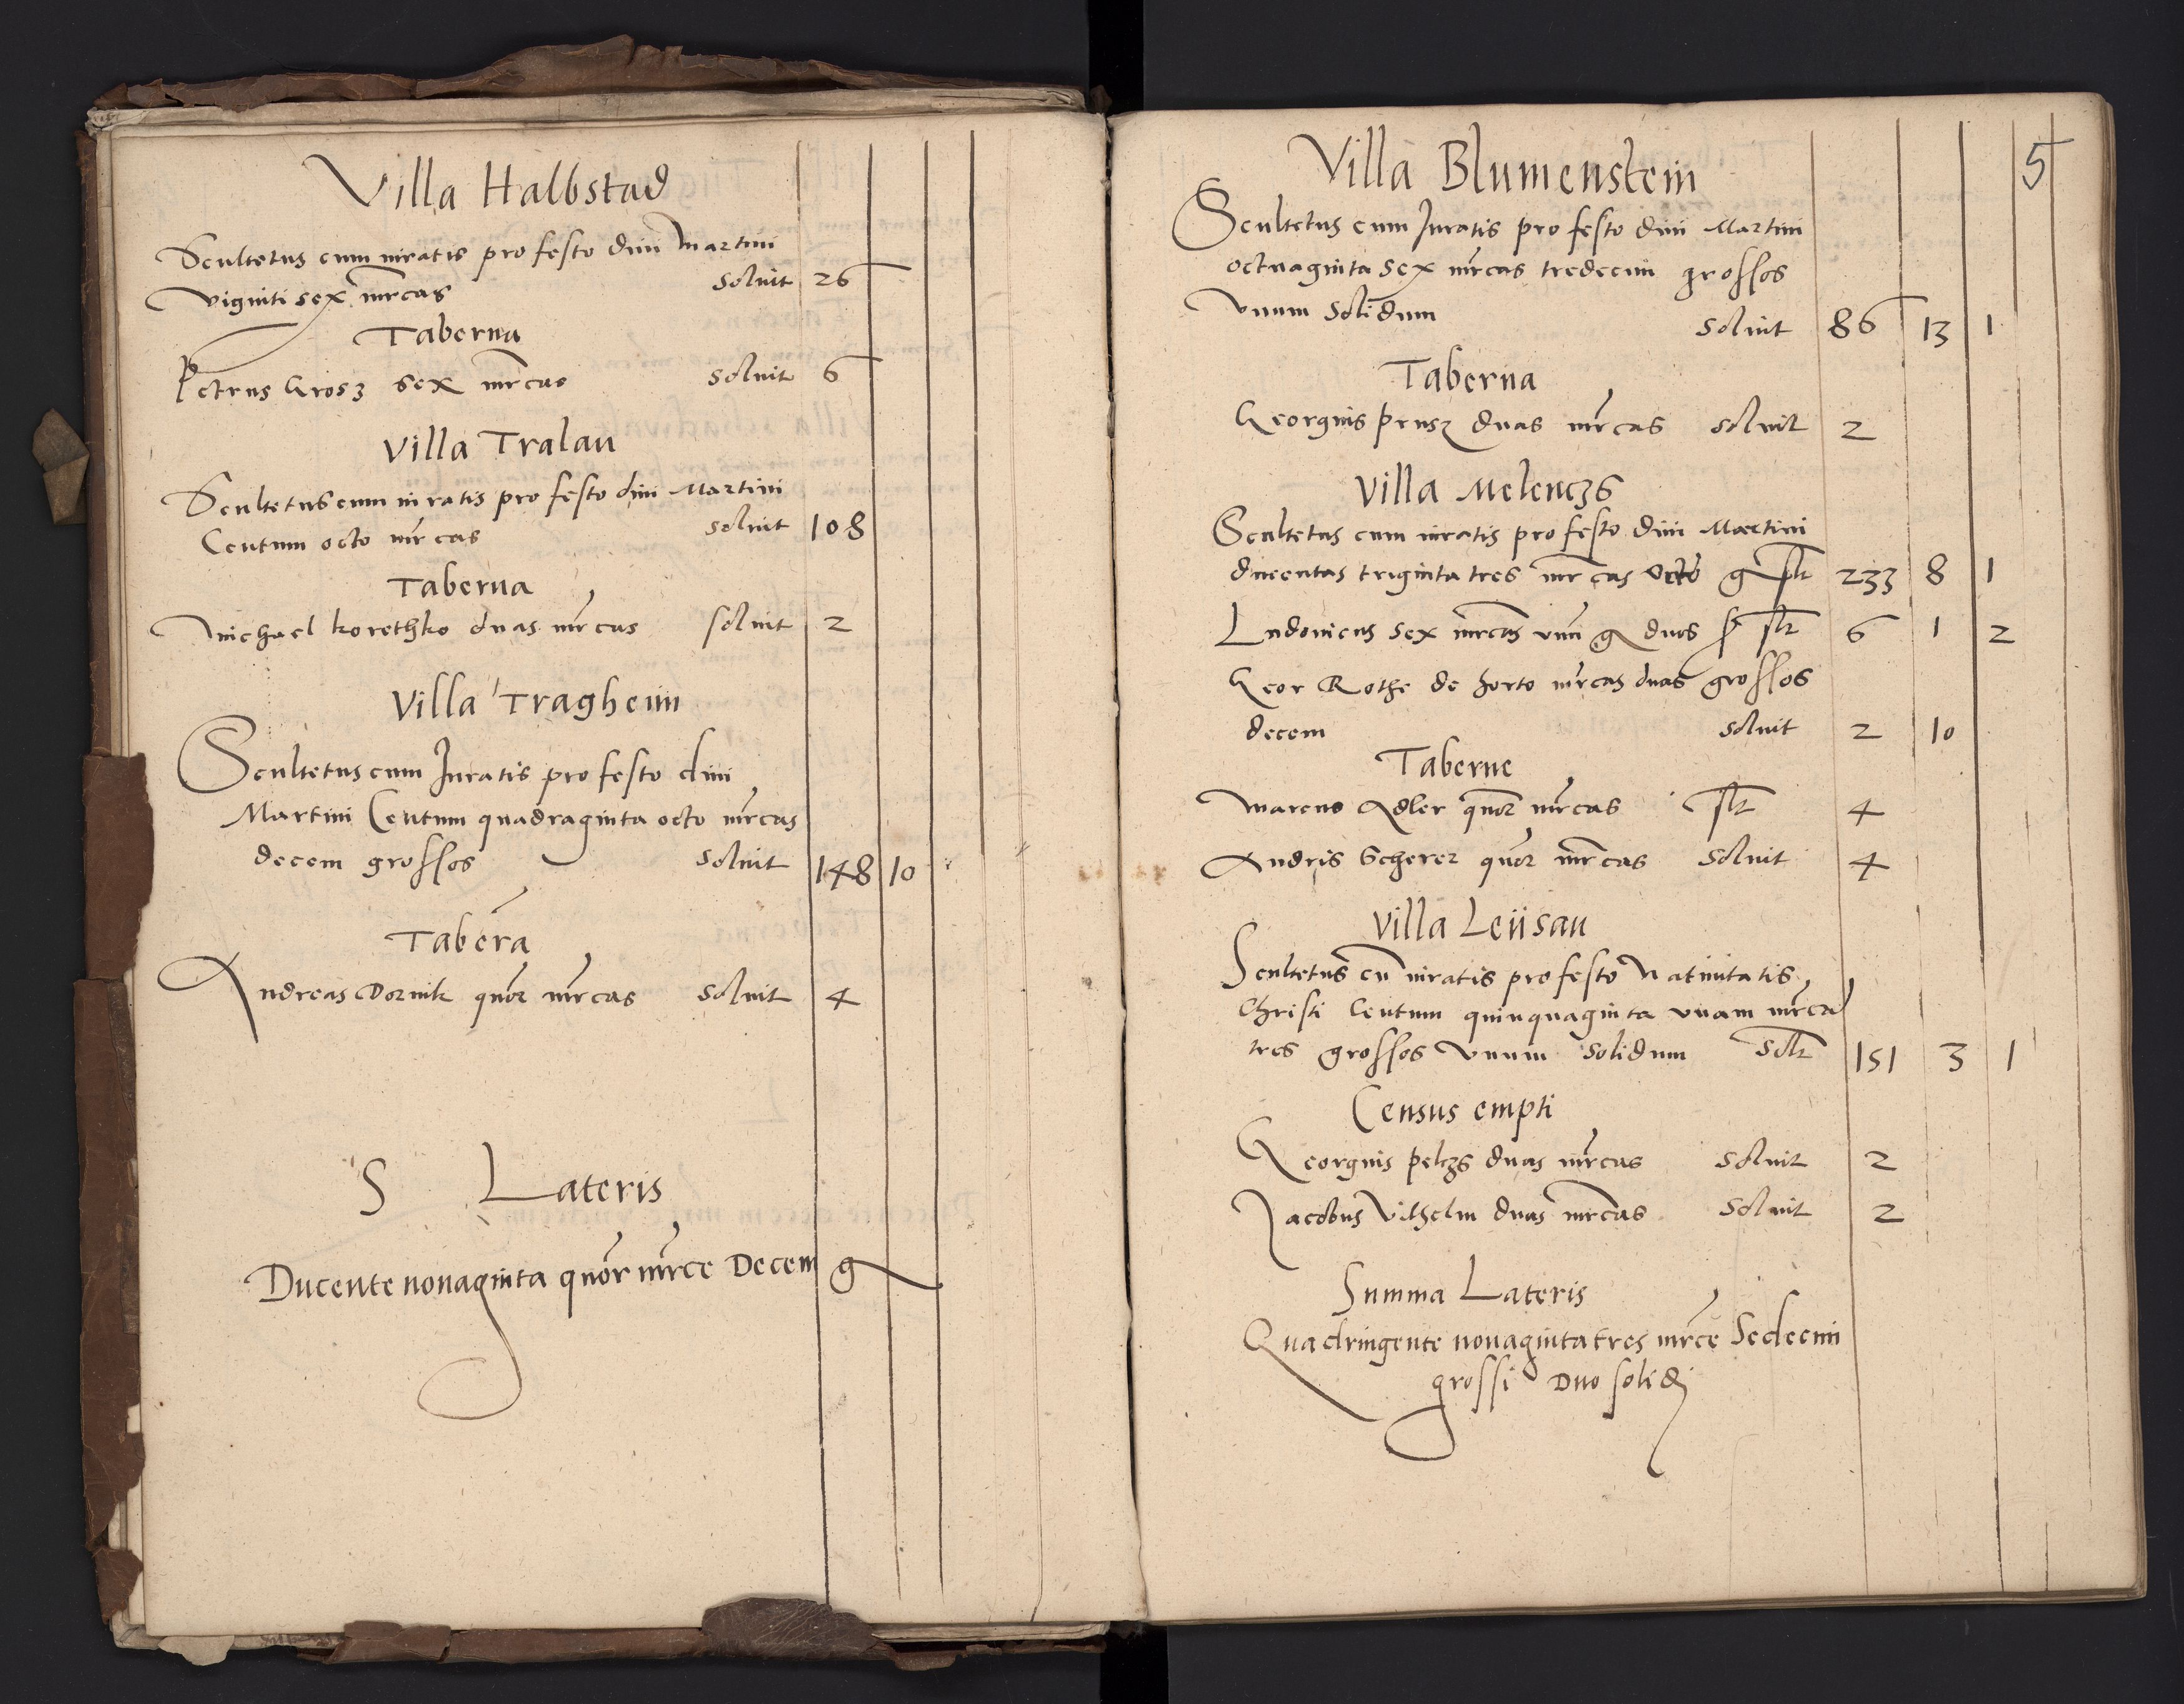 Villa Halbstad
Scultetus cum iuratis pro festo diui Martini
viginti sex mrcas soluit 26
Taberna
Petrus Grosz sex mrcas soluit 6
Villa Tralau
Scultetus cum iuratis pro festo diui Martini
Centum octo mrcas soluit 108
Taberna
Michael korethko duas mrcas soluit 2
Villa Tragheim
Scultetus cum Juratis pro festo diui
Martini Centum quadraginta octo mrcas
decem grossos soluit 148 10
Tabera
Andreas Dornik quor mrcas soluit 4
S Lateris
Ducente nonaginta quor mrce Decem g
5
Villa Blumenstein
Scultetus cum Juratis pro festo diui Martini
octuaginta sex mrcas tredecim grossos
vnum Solidum soluit 86 13 1
Taberna
Georgius prusz duas mrcas soluit 2
Villa Melenczs
Scultetus cum iuratis pro festo diui Martini
ducentas triginta tres mrcas octo g slt 233 8 1
Ludouicus sex mrcas vnu g duos ß slt 6 1 2
Geor Rothe de horto mrcas duas grossos
decem soluit 2 10
Taberne
Marcus Adler quor mrcas slt 4
Andris Scherer quor mrcas soluit 4
Villa Leijsau
Scultetus cu iuratis pro festo Natiuitatis
Christi Centum quinquaginta vnam mrca
tres grossos vnum solidum solt 151 3 1
Census empti
Georgius pelczs duas mrcas soluit 2
Jacobus Vilhelm duas mrcas soluit 2
Summa Lateris
Quadringente nonaginta tres mrce Sedecim
grossi Duo solidj